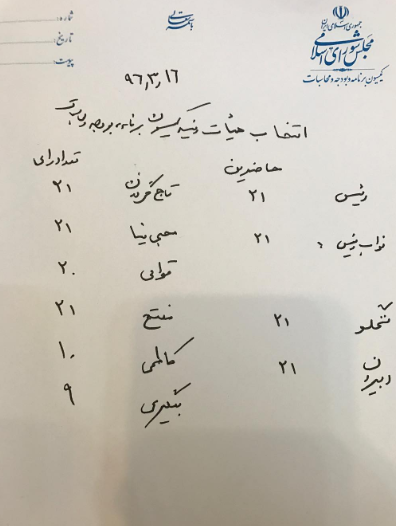 جمهوری اسلامی ایران
مجلس شورای اسلامی
کمیسیون برنامه و بودجه و محاسبات
باسمه تعالی
شماره:
تاریخ:
پیوست:
۹۶,۳,۱۶
انتخاب هیأت رئیسه کمیسیون برنامه، بودجه و
حاضرین تعداد رای
رئیس ۲۱ تاجگردون ۲۱
نواب رئیس: ۲۱ حبی نیا ۲۱
قوامی ۲۰
سخنگو ۲۱ مفتح ۲۱
دبیران ۲۱ کاظمی ۱۰
بیگدلی ۹